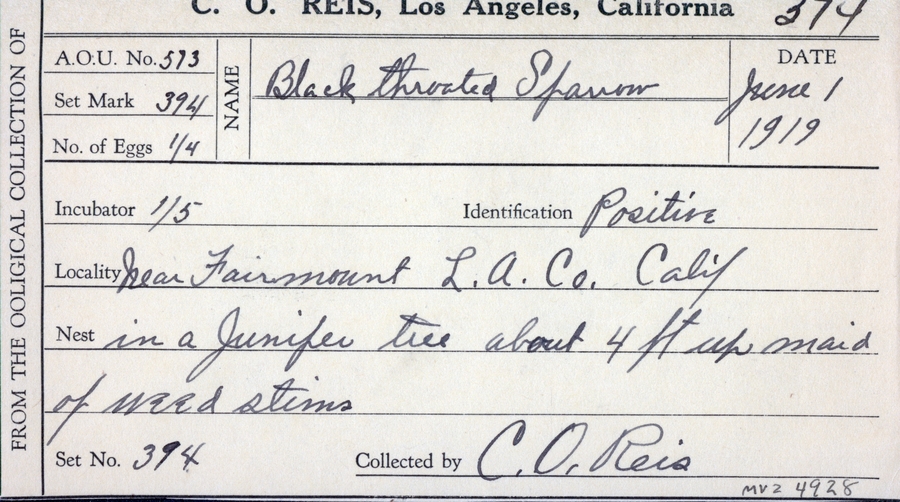 C. O. REIS, Los Angeles, California 394
FROM THE OOLIGICAL COLLECTION OF
A.O.U. No. 573
Set Mark 394
No. of Eggs 1/4
NAME
Black throated Sparrow
DATE
June 1
1919
Incubator 1/5
Identification Positive
Locality Near Fairmount L.A. Co. Calif
Nest in a Junifer tree about 4 ft up maid
of weed stims
Set No. 394
Collected by C. O. Reis
MVZ 4928